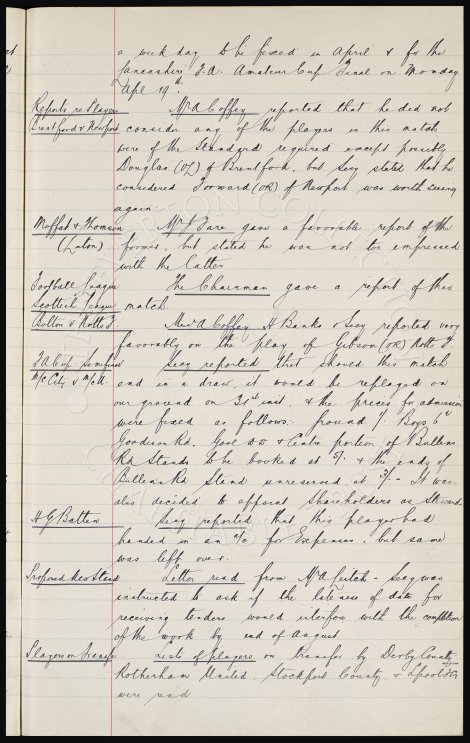 a week day to be fixed in April & for the
Lancashire F.A. Amateur Cup Final on Monday
Apl 19th.
Reports re Players Mr A Coffey reported that he did not
Brentford v Newport consider any of the players in this match
were of the standard required except possibly
Douglas (OL) of Brentford, but Secy stated that he
considered Forward (OR) of Newport was worth seeing
again.
Moffat & Thomson Mr J Fare gave a favorable report of the
(Luton) former, but stated he was not too impressed
with the latter
Football League The Chairman gave a report of this
Scottish League match.
Bolton v Notts F Messrs A Coffey H Banks & Secy reported very
favorably on the play of Gibson (OR) Nott F
F.A Cup Semifinal Secy reported that should this match
M/c City v M/c U. end in a draw, it would be replayed on
our ground on 31st inst. & the prices for admission
were fixed as follows: Ground 1/- Boys 6d
Goodison Rd, Goal and Centre portion of Bullens
Rd Stands to be booked at 5/- & the ends of
Bullens Rd Stand unreserved at 3/- It was
also decided to appoint shareholders as Stewards
H G Batten Secy reported that this player had
handed in an a/c for Expenses, but same
was left over.
Proposed New Stand Letter read from Mr A Leitch - Secy was
instructed to ask if the lateness of date for
receiving tenders would interfere with the completion
of the work by end of August
Players on transfer Lists of players on transfer by Derby County
Rotherham United, Stockport County, &
were read